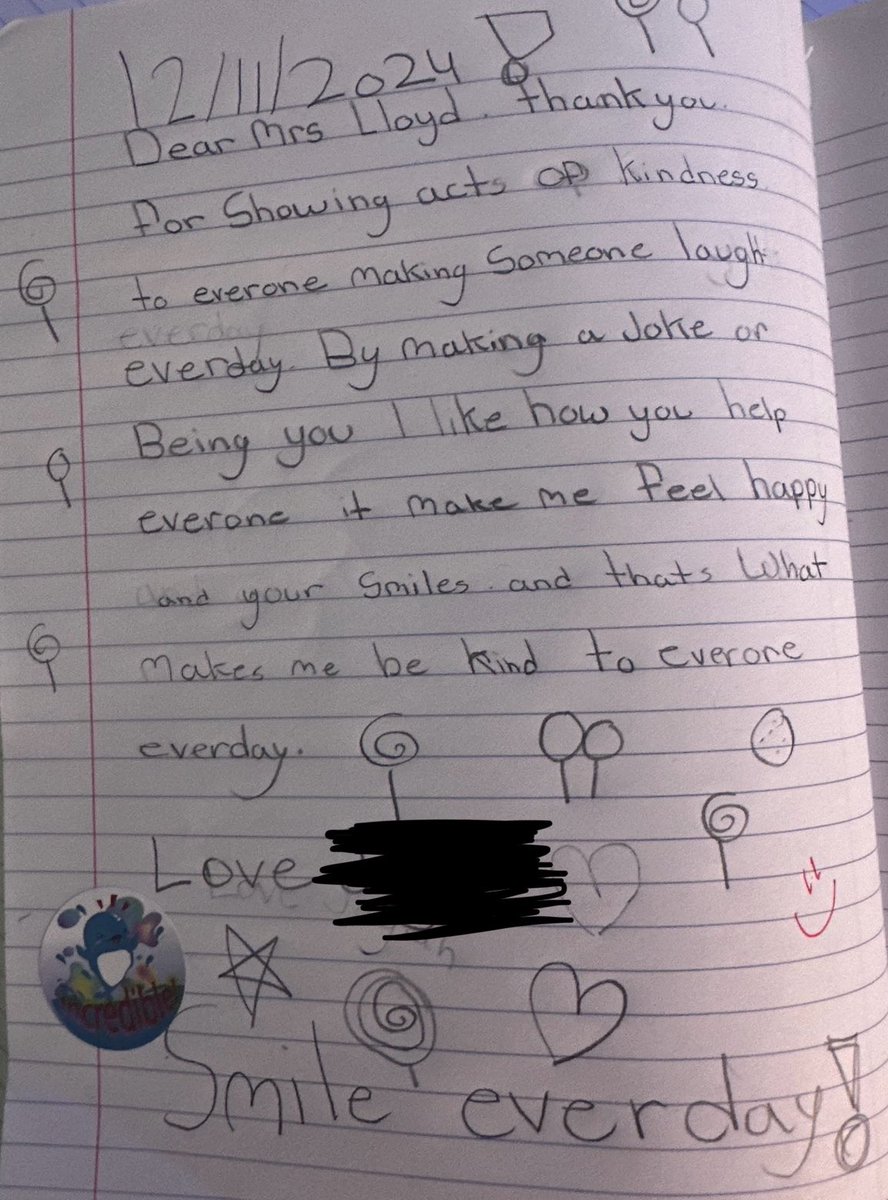 12/11/2024 !
Dear Mrs Lloyd. thank you.
for Showing acts of kindness
to everone making Someone laugh
everday
everday. By making a Joke or
Being you I like how you help
everone it make me feel happy
and your Smiles. and thats What
Makes me be kind to everone
everday.
Love
incredible!
Smile everday!